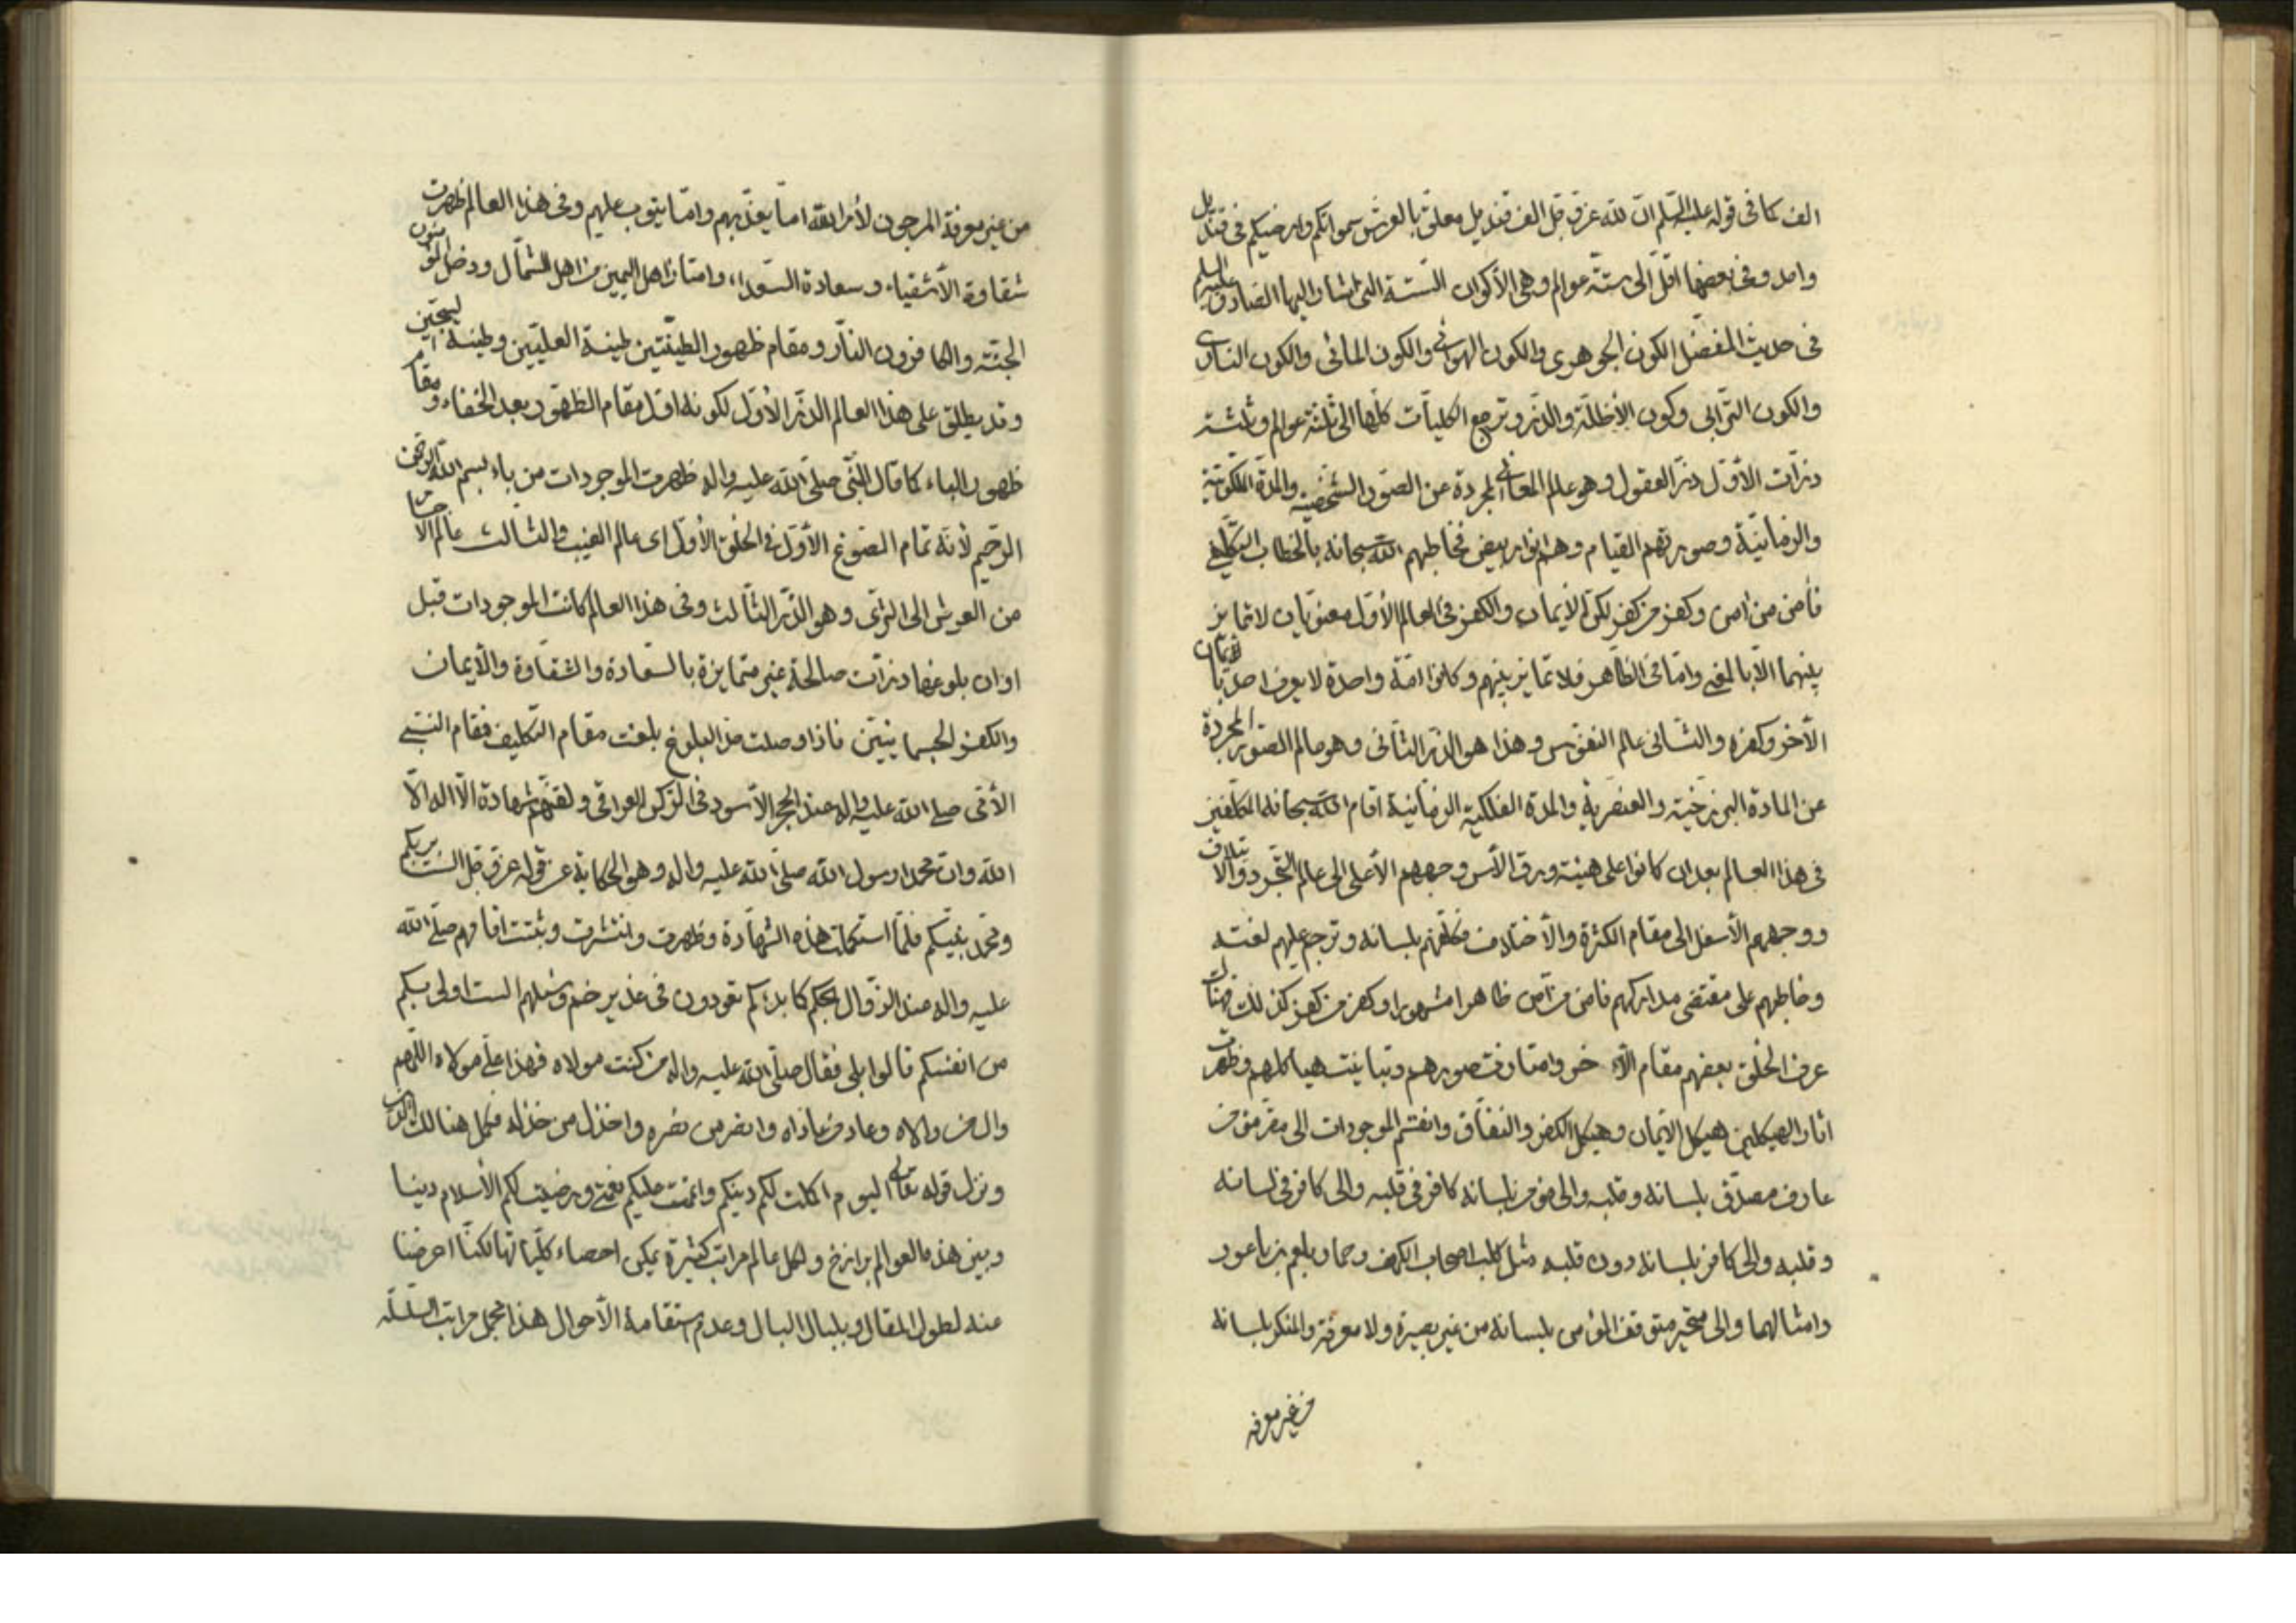 الف كما فى قوله عليه السلم ان لله عز و جل الف قنديل معلق بالعرش سمواتكم وارضيكم فى قنديل
واحد وفى بعضها اقل الى ستة عوالم وهى الأكوان الستة التى اشار اليها الصادق عليه السلم
فى حديث المفضل الكون الجوهرى والكون الهوائى والكون المائى والكون النارى
والكون الترابى وكون الأظلة والذر وترجع الكليات كلها الى ثلثة عوالم وثلثة
ذرات الأول ذر العقول وهو عالم المعانى المجردة عن الصور الشخصية والمدة الملكوتية
والزمانية وصورتهم القيام وهم انوار بيض فخاطبهم الله سبحانه بالخطاب التكليفى
فأمن من امن وكفر من كفر لكن الايمان والكفر فى العالم الأول معنويان لا تمايز
بينهما الا بالمعنى واما فى الظاهر فلا تمايز بينهم وكانوا امة واحدة لا يعرف احد بايمان
الأخر وكفره والثانى عالم النفوس وهذا هو الذر الثانى وهو عالم الصور المجردة
عن المادة البرزخية والعنصرية والمدة الفلكية الزمانية اقام الله سبحانه المكلفين
فى هذا العالم بعد ان كانوا على هيئة ورق الأس وجههم الأعلى الى عالم التجرد والائتلاف
ووجههم الأسفل الى مقام الكثرة والأختلاف فكلفهم بلسانه وترجم عليهم لغته
وخاطبهم على مقتضى مداركهم فامن من امن ظاهرا مشهورا وكفر من كفر كذلك فهنالك
عرف الخلق بعضهم مقام الأخر وامتازت صورهم وتباينت هياكلهم وظهرت
اثار الهيكلين هيكل الايمان وهيكل الكفر والنفاق وانقسم الموجودات الى مقر مؤمن
عارف مصدق بلسانه وقلبه والى مؤمن بلسانه كافر فى قلبه والى كافر فى لسانه
وقلبه والى كافر بلسانه دون قلبه مثل كلب اصحاب الكهف وحمار بلعم بن باعور
وامثالهما والى متحير متوقف المؤمن بلسانه من غير بصيرة ولا معرفة والمنكر بلسانه
من غير معرفة
من غير معرفة المرجون لأمر الله اما يعذبهم واما يتوب عليهم وفى هذا العالم ظهرت
شقاوة الأشقياء وسعادة السعداء وامتاز اهل اليمين من اهل الشمال ودخل المؤمنون
الجنة والكافرون النار ومقام ظهور الطينتين طينة العليين وطينة السجين
وقد يطلق على هذا العالم الذر الأول لكونه اول مقام الظهور بعد الخفاء ومقام
ظهور الباء كما قال النبى صلى الله عليه واله ظهرت الموجودات من باء بسم الله الرحمن
الرحيم لأنه تمام الصوغ الأول فى الخلق الأول اى عالم الغيب والثالث عالم الأجسام
من العرش الى الثرى وهو الذر الثالث وفى هذا العالم كانت الموجودات قبل
اوان بلوغها ذرات صالحة غير متمايزة بالسعادة والشقاوة والأيمان
والكفر الجسمانيين فاذا وصلت حد البلوغ بلغت مقام التكليف فقام النبى
الأمى صلى الله عليه واله عند الحجر الأسود فى الركن العراقى ولقنهم شهادة الا اله الا
الله وان محمدا رسول الله صلى الله عليه واله وهو الحكاية عن قوله عز و جل الست بربكم
ومحمد نبيكم فلما استكملت هذه الشهادة وظهرت وانتشرت وثبتت اقامهم صلى الله
عليه واله عند الزوال بحكم كما بدئكم تعودون فى غدير خم وسئلهم الست اولى بكم
من انفسكم قالوا بلى فقال صلى الله عليه واله من كنت مولاه فهذا على مولاه اللهم
وال من والاه وعاد من عاداه وانصر من نصره واخذل من خذله فكمل هنالك الدين
ونزل قوله تعالى اليوم اكملت لكم دينكم واتممت عليكم نعمتى ورضيت لكم الأسلام دينا
وبين هذه العوالم برازخ ولكل عالم مراتب كثيرة يمكن احصاء كلياتها لكننا اعرضنا
عنه لطول المقال وبلبال البال وعدم استقامة الأحوال هذا مجمل مراتب السلسلة